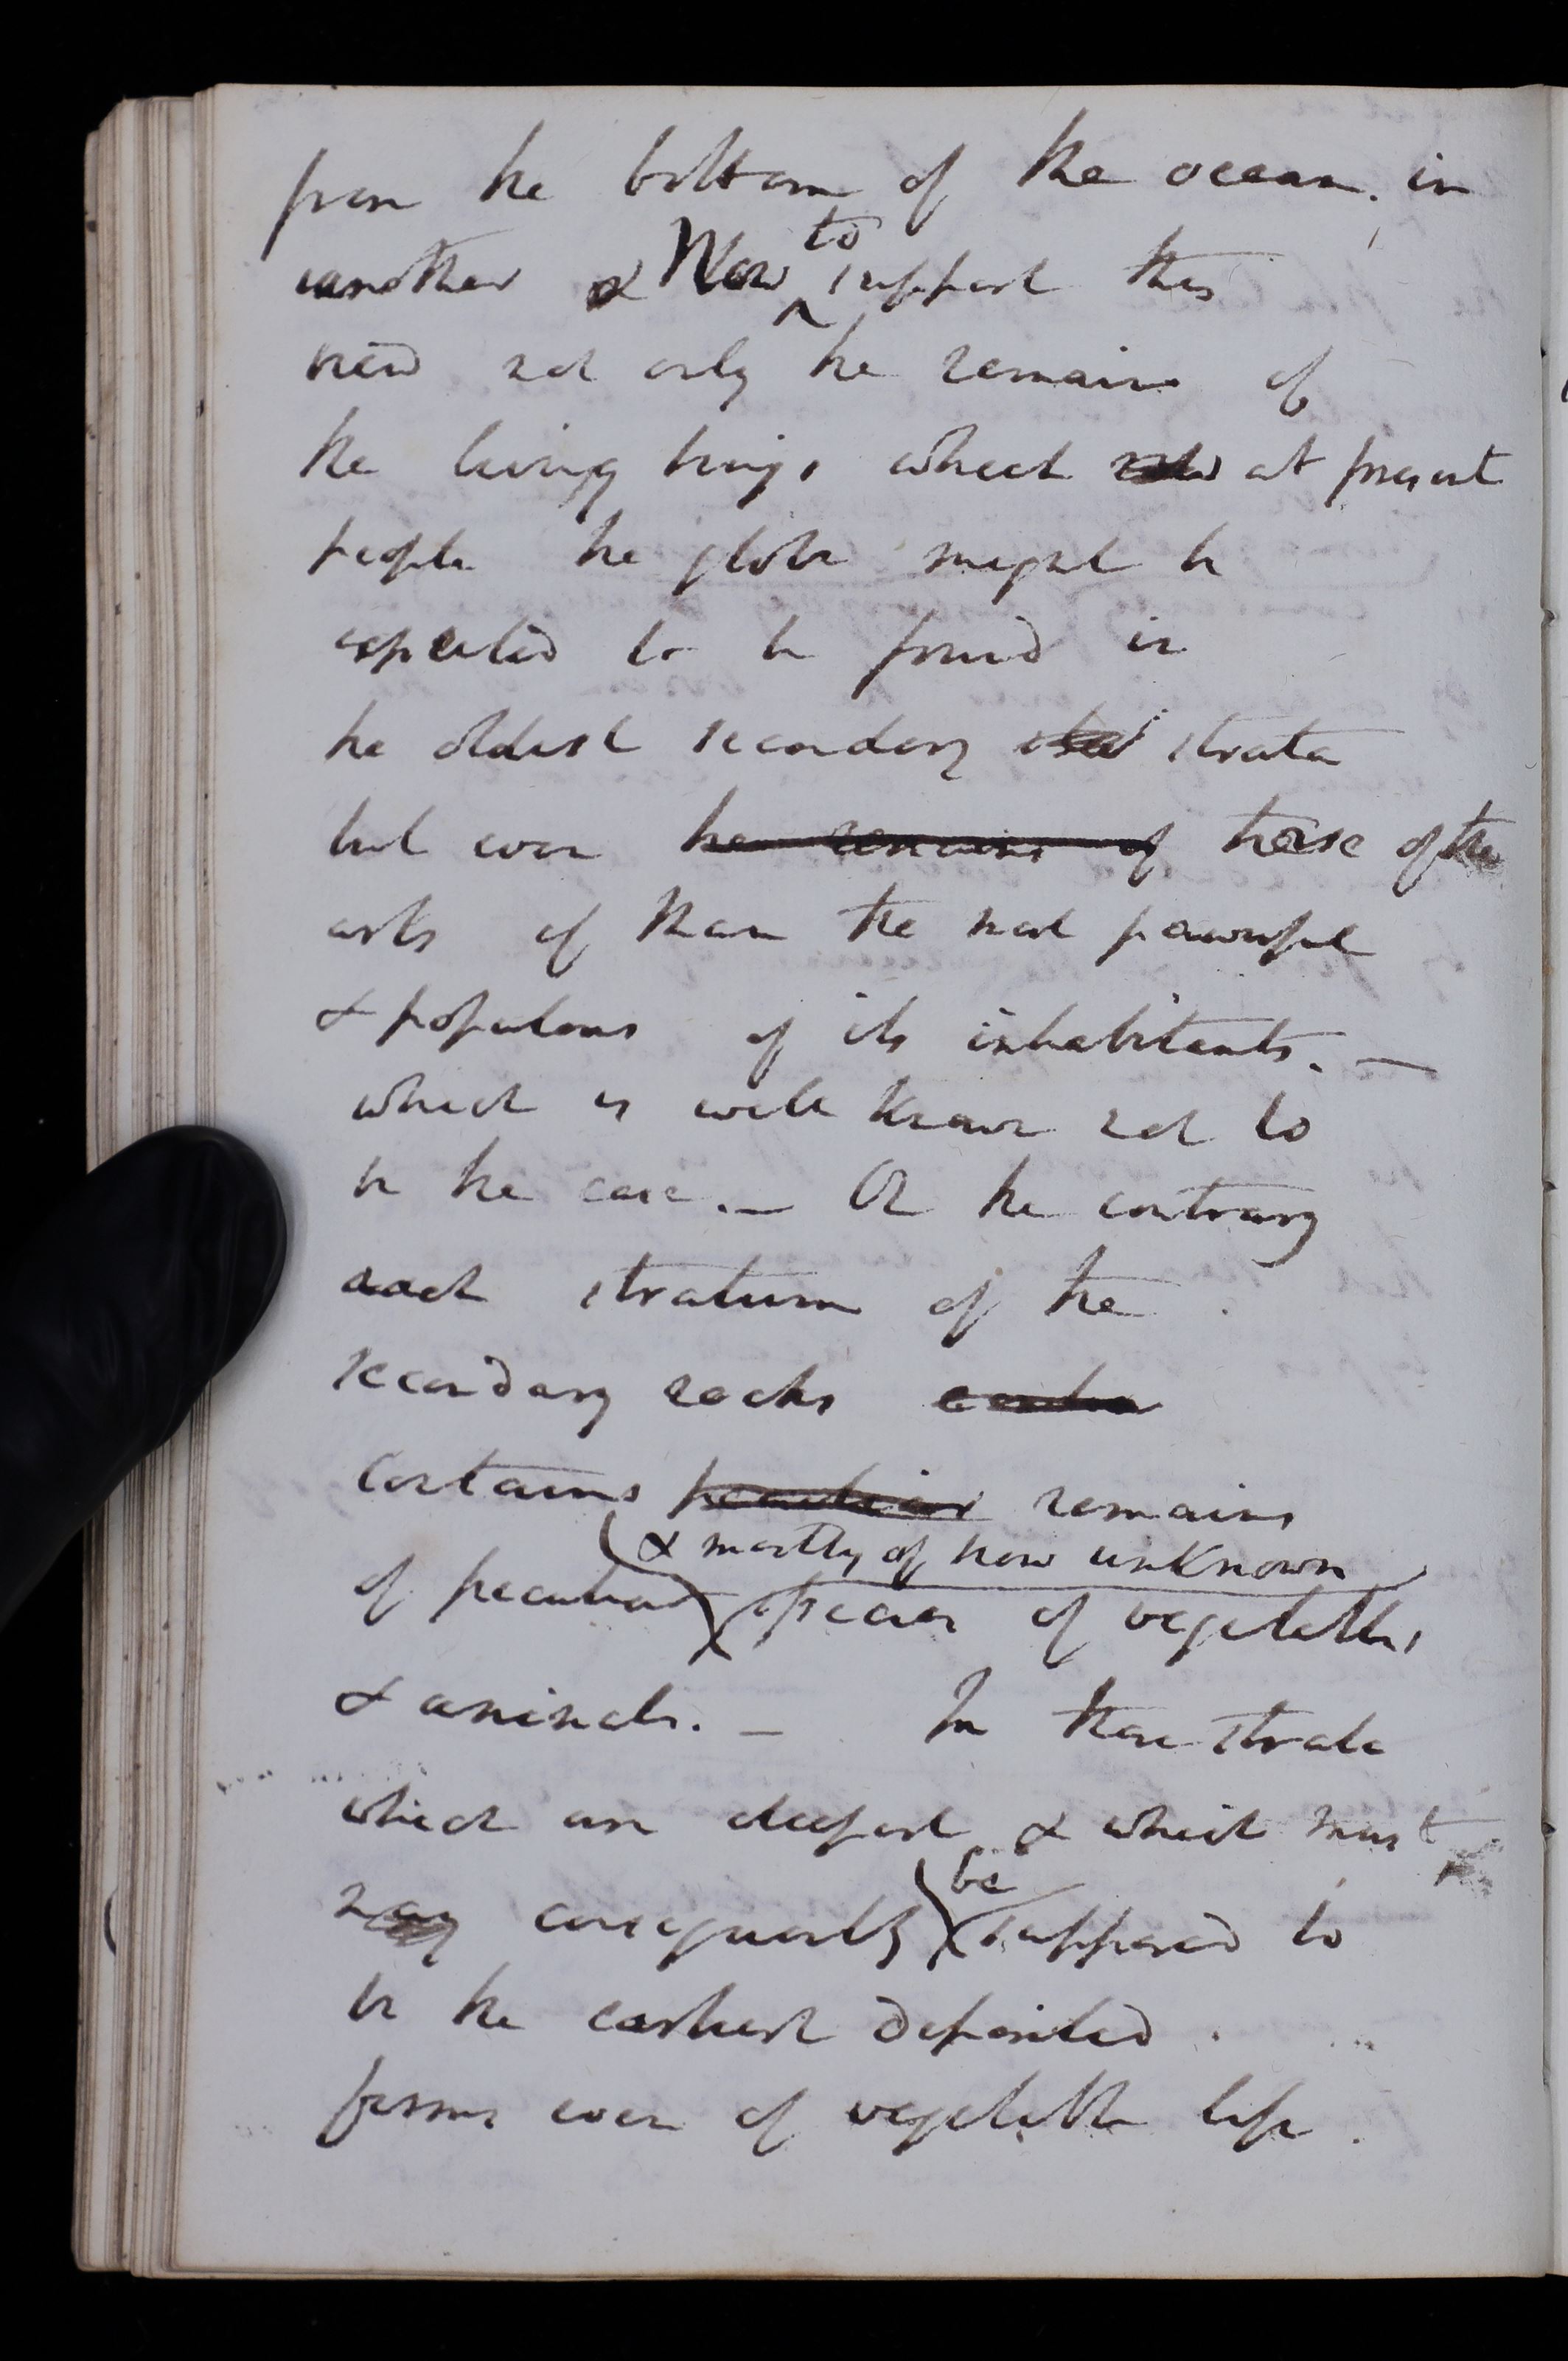 from the bottom of the ocean. in
another & Now to support this
view not only the remains of
the living beings which now at present
people the globe might be
expected to be found in
the oldest secondary strata
but even the remains of those of the
arts of Man the most powerful
& populous of its inhabitants. —
which is well known not to
be the case. — On the contrary
each stratum of the
secondary rocks contain
contains peculiar remains
& mostly of now unknown
of peculiar species of vegetables
& animals. — In those strata
which are deepest & which must
be
may consequently supposed to
be the earliest deposited
forms even of vegetable life.